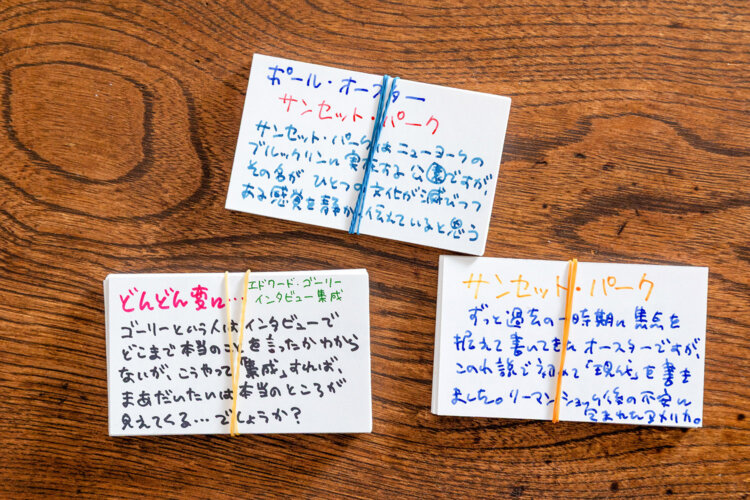 ポール・オースター
サンセット・パーク
サンセット・パークはニューヨークの
ブルックリンに実在する公園ですが
その名が ひとつの文化が滅びつつ
ある感覚を静かに伝えていると思う
どんどん変に…
エドワード・ゴーリー
インタビュー集成
ゴーリーという人はインタビューで
どこまで本当のことを言ったかわから
ないが、こうやって「集成」すれば、
まあだいたいは本当のところが
見えてくる…でしょうか?
サンセット・パーク
ずっと過去の一時期に焦点を
据えて書いてきたオースターですが、
この小説で初めて「現代」を書き
ました。リーマンショック後の不安に
包まれたアメリカ。